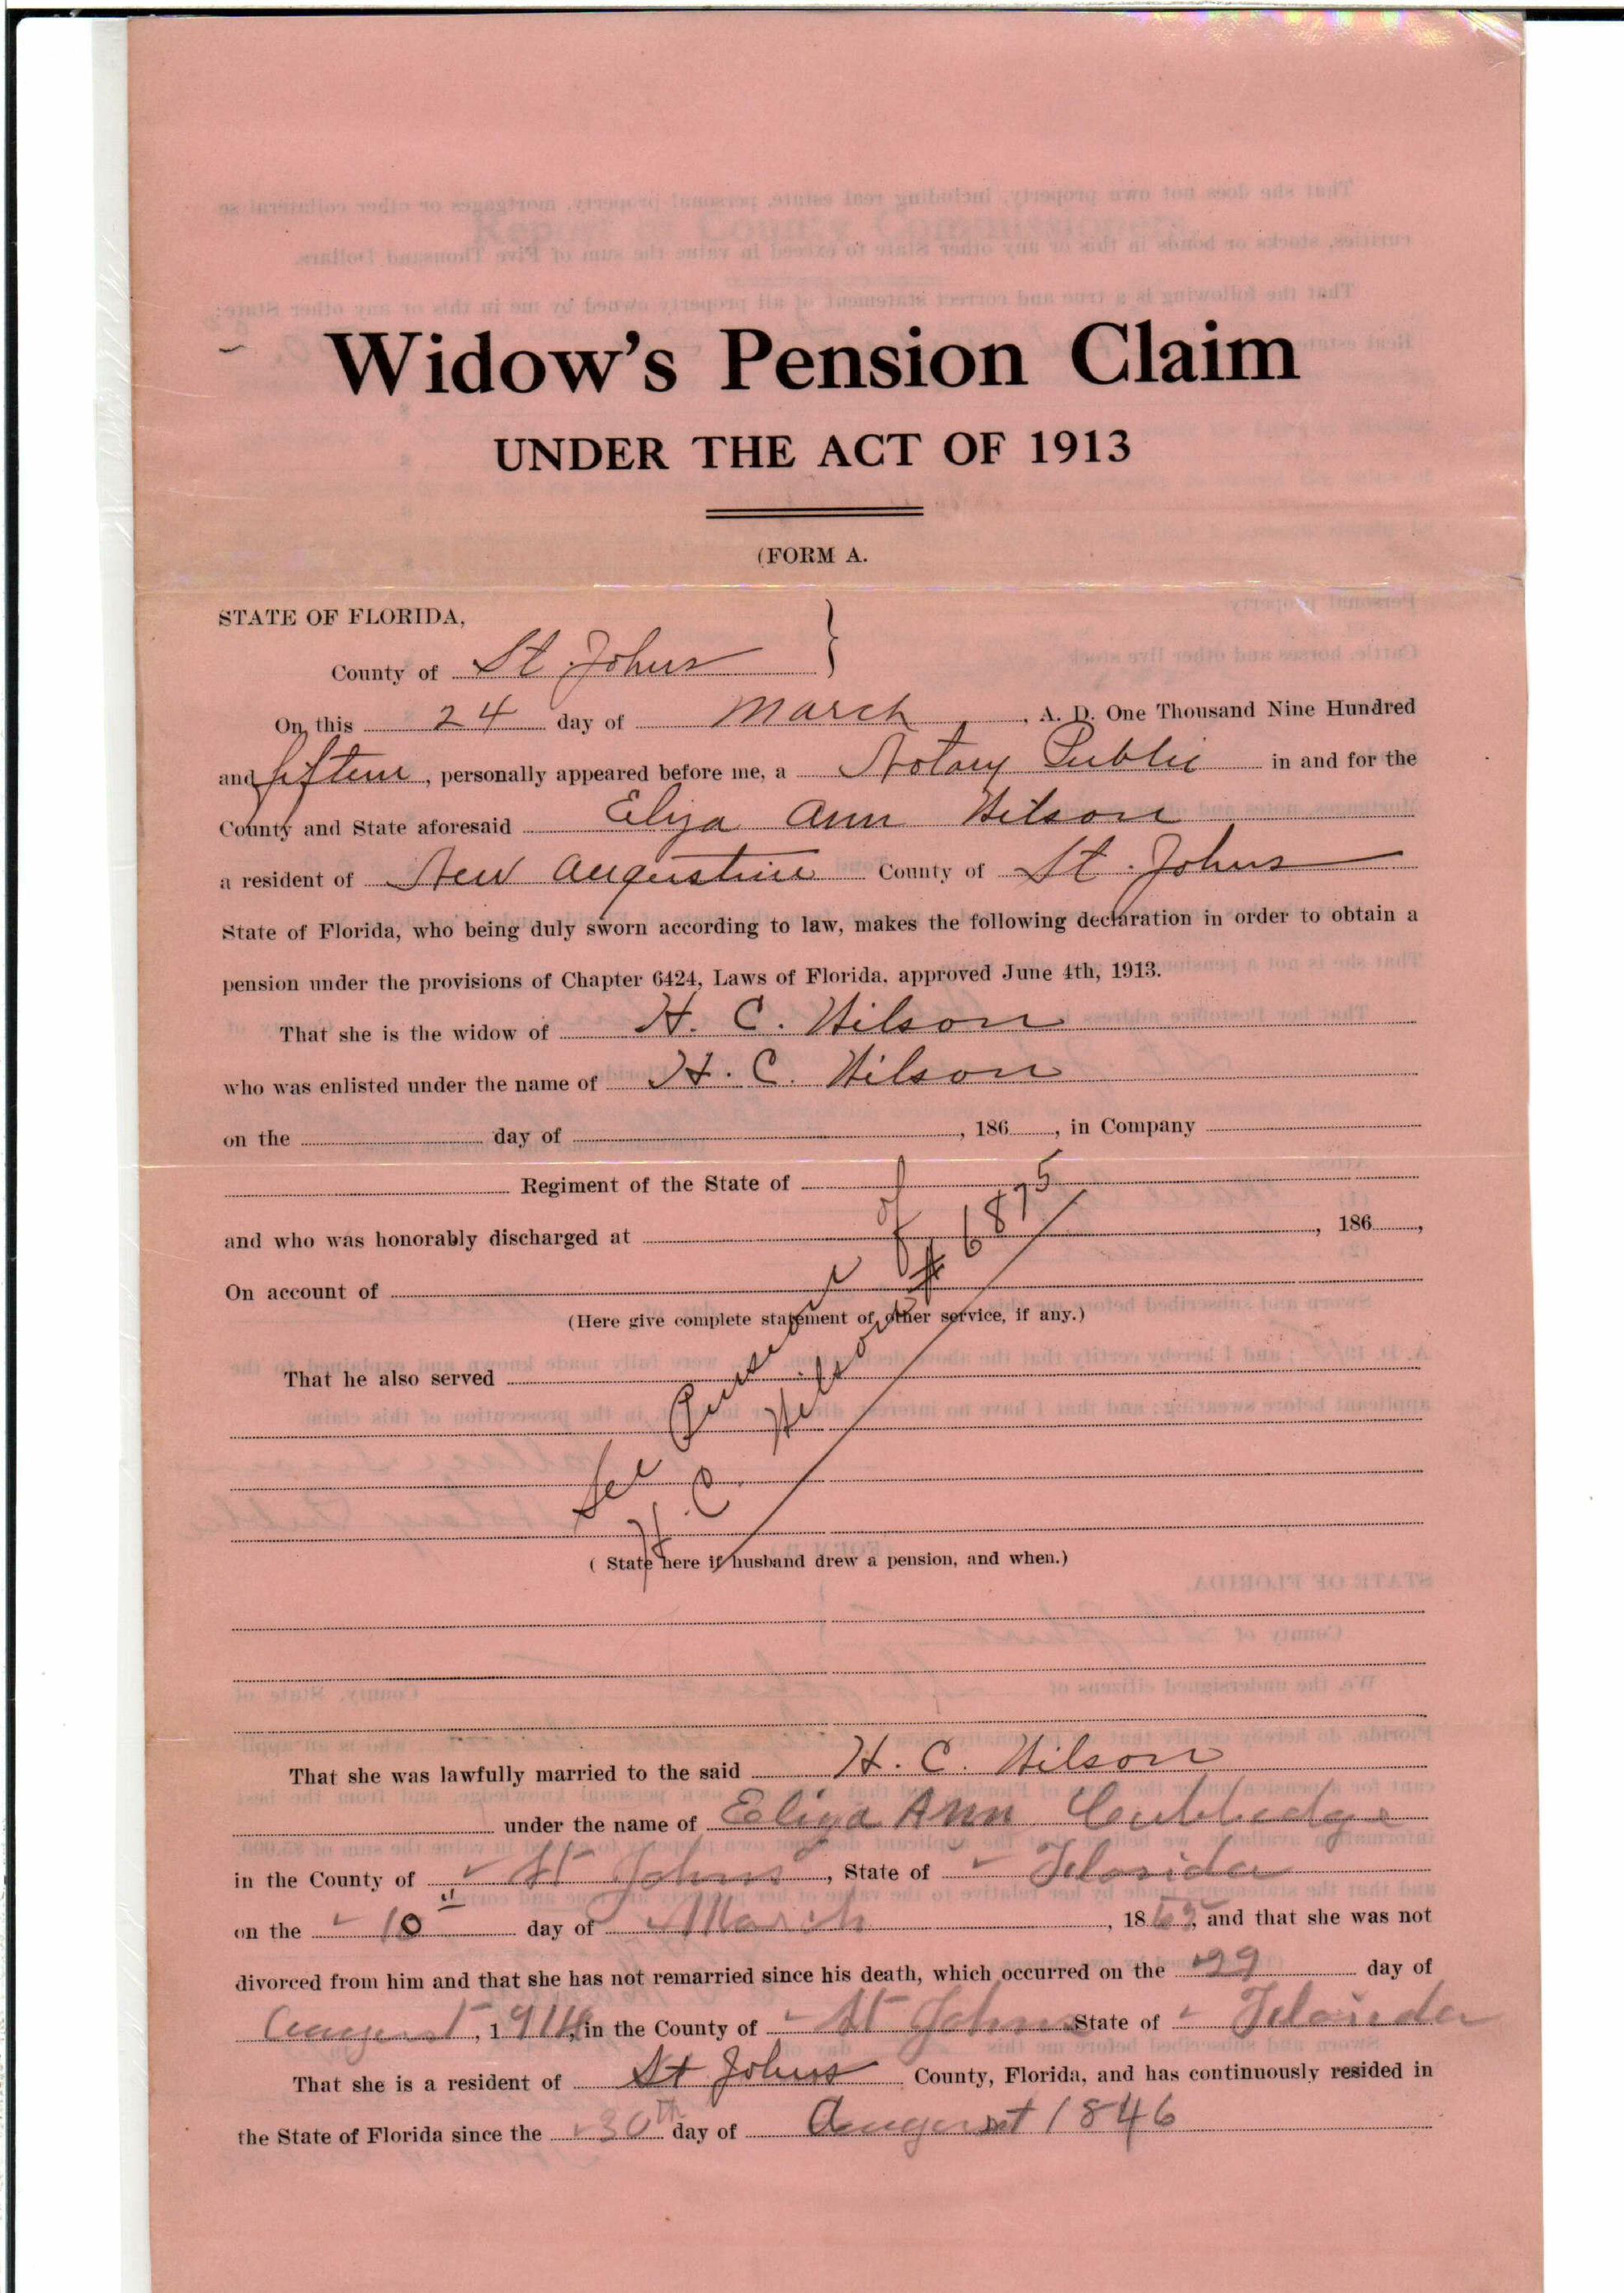 Widow's Pension Claim
UNDER THE ACT OF 1913
(FORM A.
STATE OF FLORIDA,
County of St. Johns }
On this 24 day of March, A. D. One Thousand Nine Hundred
and fifteen, personally appeared before me, a Notary Public in and for the
County and State aforesaid Eliza Ann Wilson
a resident of New Augustine County of St. Johns
State of Florida, who being duly sworn according to law, makes the following declaration in order to obtain a
pension under the provisions of Chapter 6424, Laws of Florida, approved June 4th, 1913.
That she is the widow of H. C. Wilson
who was enlisted under the name of H. C. Wilson
on the day of , 186 , in Company
Regiment of the State of
and who was honorably discharged at , 186 ,
On account of
(Here give complete statement of other service, if any.)
That he also served
See of
H. C. # 6875
( State here if husband drew a pension, and when.)
That she was lawfully married to the said H. C. Wilson
under the name of Eliza Ann
in the County of St Johns, State of Florida
on the 10 day of March, 186 , and that she was not
divorced from him and that she has not remarried since his death, which occurred on the 29 day of
August, 1914, in the County of St Johns State of Florida
That she is a resident of St Johns County, Florida, and has continuously resided in
the State of Florida since the 30th day of August 1846